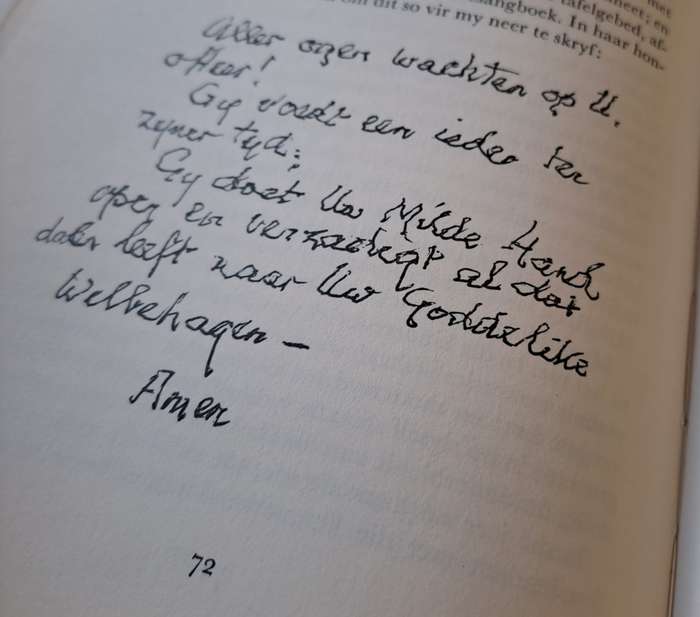 neet; en
tafelgebed, af-
sangboek. In haar hon-
om dit so vir my neer te skryf:
Aller ogen wachten op U.
o Heer!
Gy voedt een ieder ter
zyner tyd;
Gy doet Uw Milde Hand
open en verzadigt al dat
daar leeft naar Uw Goddelike
Welbehagen –
Amen
72